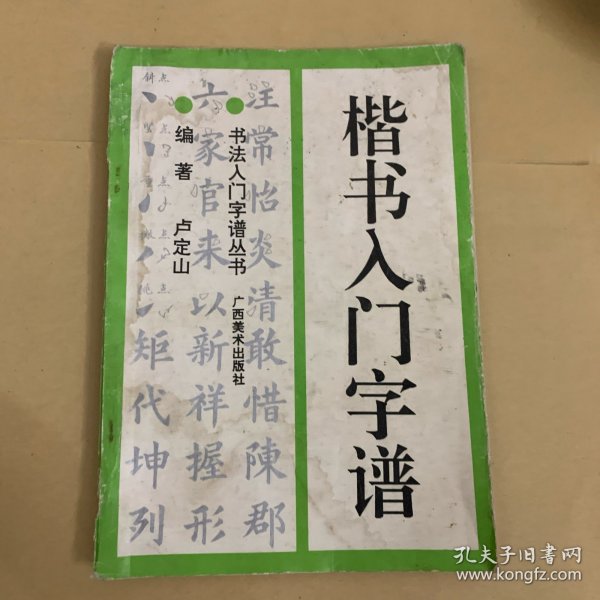 楷书入门字谱
书法入门字谱丛书 广西美术出版社
编著 卢定山
常怡炎清敢惜陳郡
六家官来以新祥握形
矩代坤列
孔夫子旧书网
www.kongfz.com